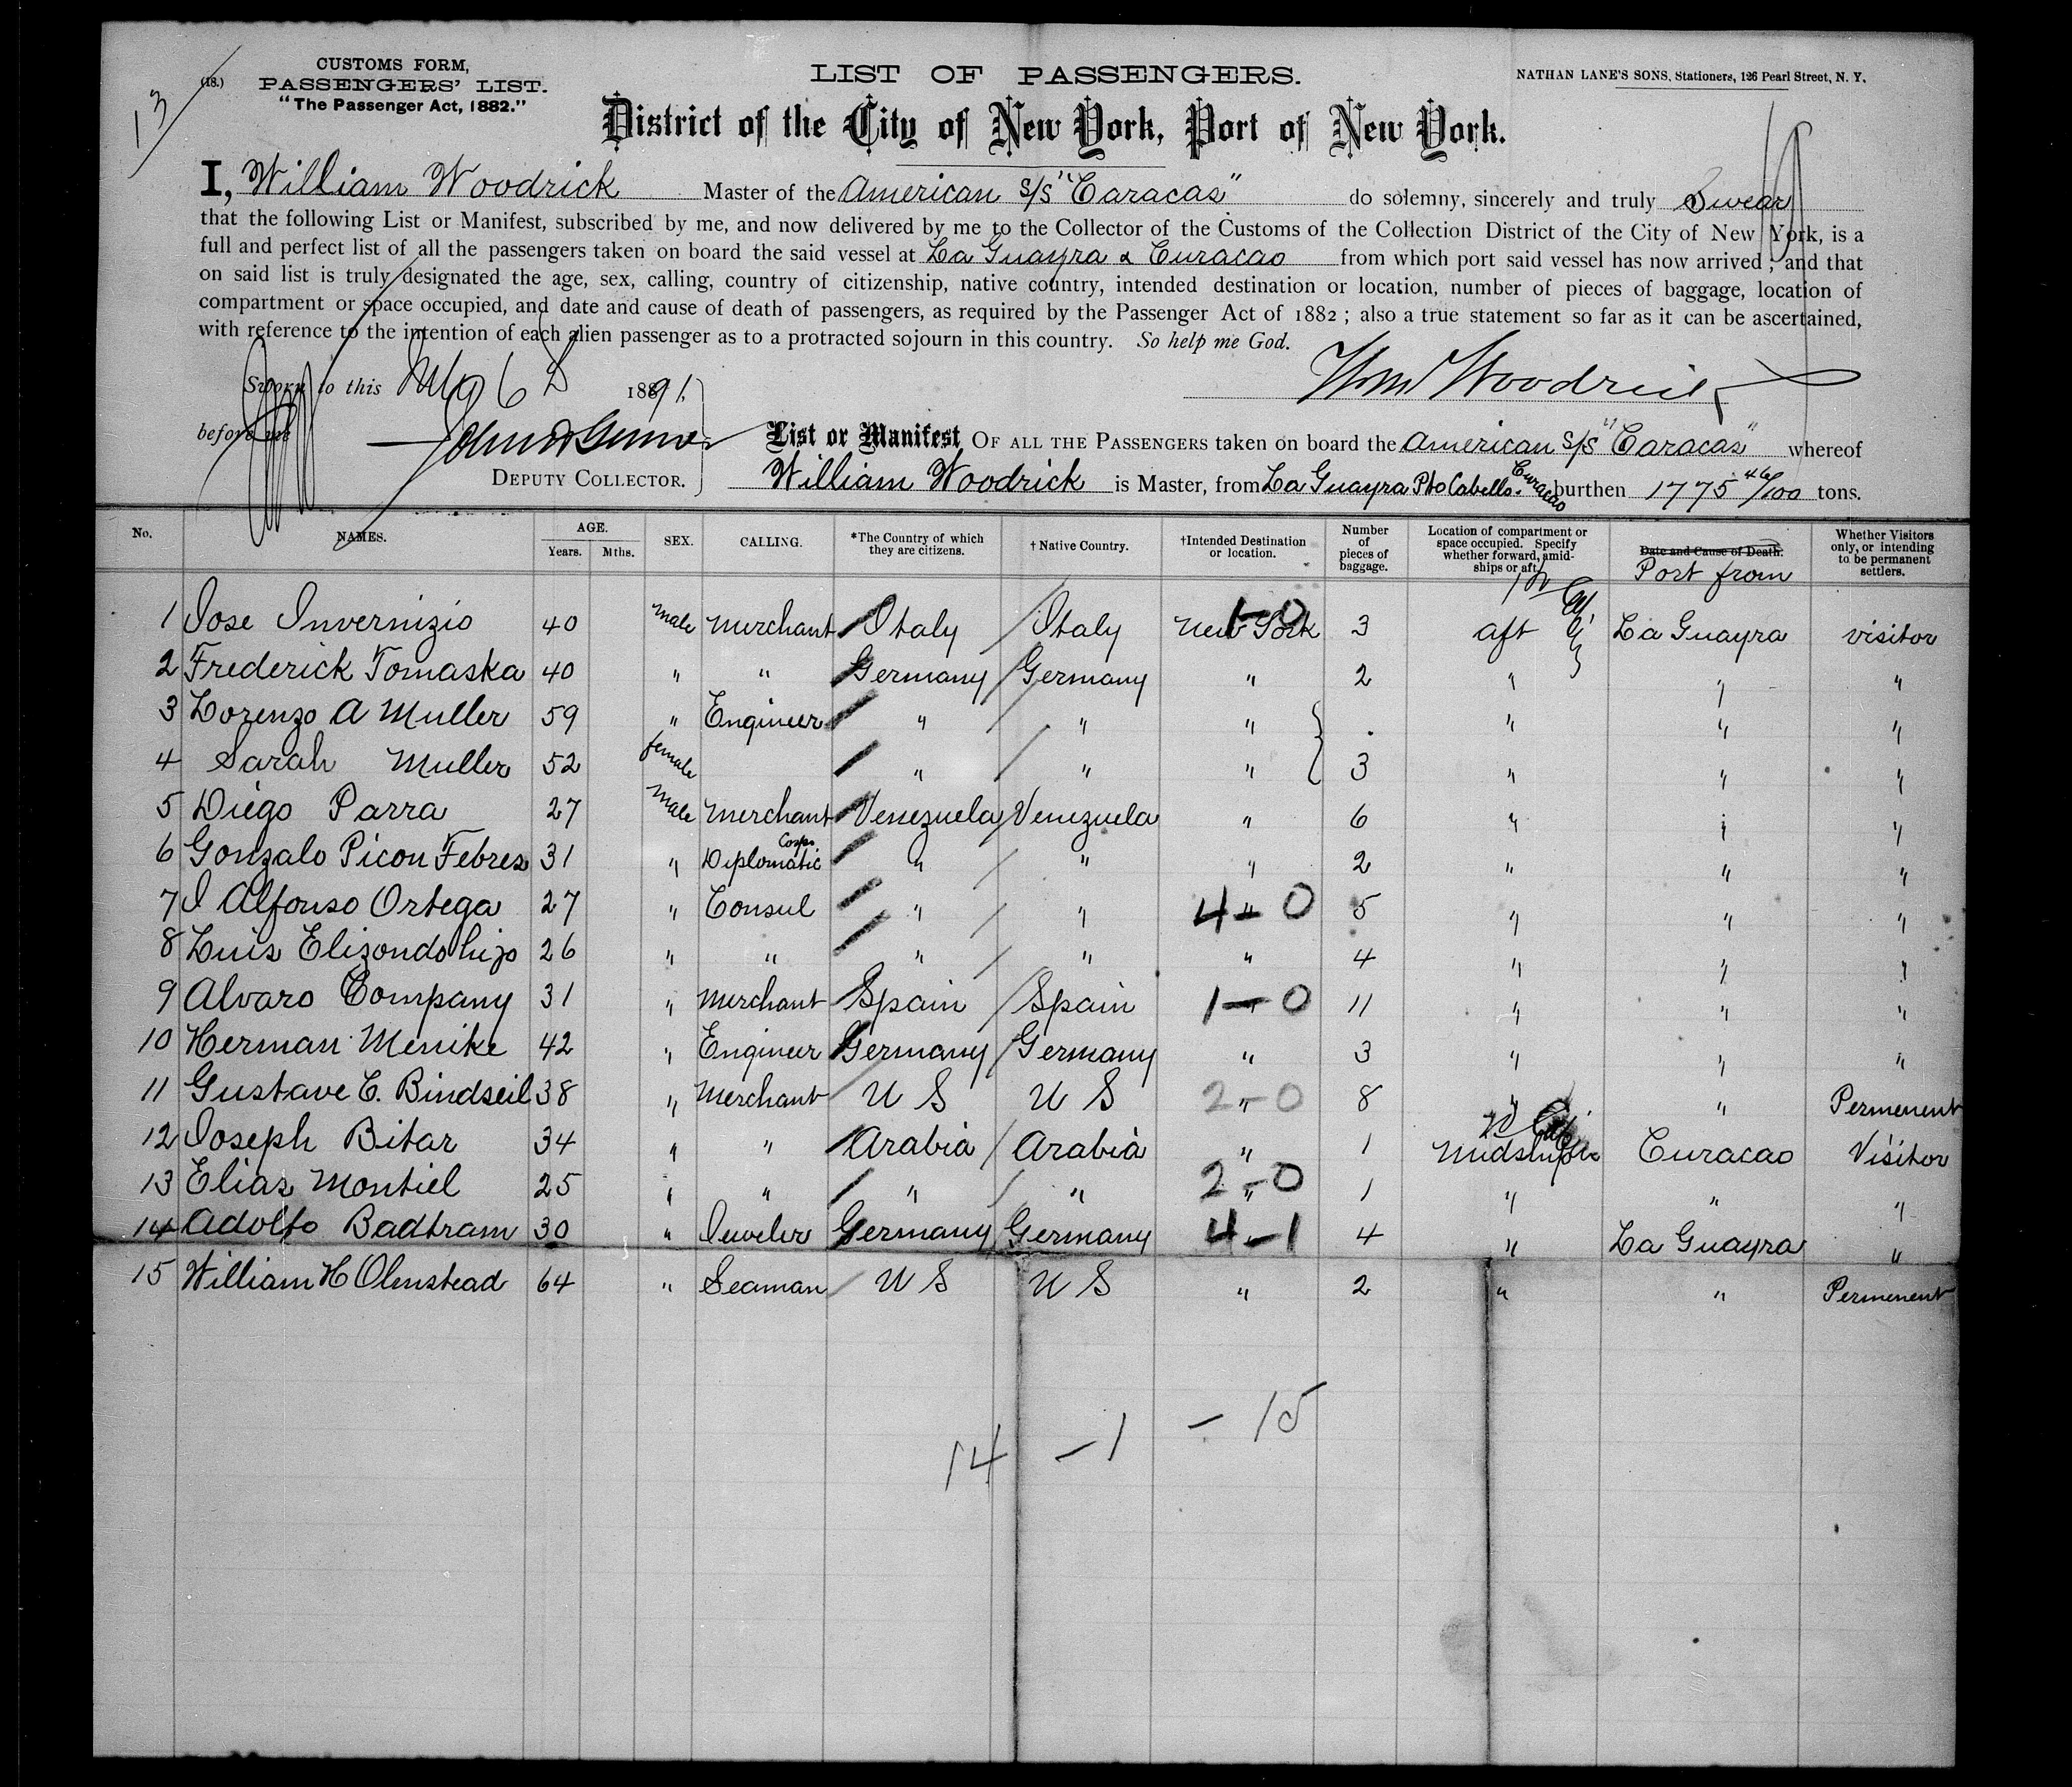 13
(18.)
CUSTOMS FORM,
PASSENGERS' LIST.
"The Passenger Act, 1882."
LIST OF PASSENGERS.
NATHAN LANE'S SONS, Stationers, 136 Pearl Street, N. Y.
District of the City of New York, Port of New York.
I, William Woodrick Master of the American S/S "Caracas" do solemny, sincerely and truly Swear
that the following List or Manifest, subscribed by me, and now delivered by me to the Collector of the Customs of the Collection District of the City of New York, is a
full and perfect list of all the passengers taken on board the said vessel at La Guayra & Curacao from which port said vessel has now arrived; and that
on said list is truly designated the age, sex, calling, country of citizenship, native country, intended destination or location, number of pieces of baggage, location of
compartment or space occupied, and date and cause of death of passengers, as required by the Passenger Act of 1882; also a true statement so far as it can be ascertained,
with reference to the intention of each alien passenger as to a protracted sojourn in this country. So help me God.
Sworn to this 6 1891. Wm Woodrick
before me
DEPUTY COLLECTOR.
List or Manifest OF ALL THE PASSENGERS taken on board the American S/S "Caracas" whereof
William Woodrick is Master, from La Guayra Pto Cabello. Curacao burthen 1775 46/100 tons.
No. NAMES. AGE. Years. Mths. SEX. CALLING. *The Country of which they are citizens. † Native Country. †Intended Destination or location. Number of pieces of baggage. Location of compartment or space occupied. Specify whether forward, amidships or aft. Date and Cause of Death. Port from Whether Visitors only, or intending to be permanent settlers.
1 Jose Invernizio 40 male Merchant Italy Italy New York 1-0 3 aft La Guayra visitor
2 Frederick Tomaska 40 " " Germany Germany " 2 " " "
3 Lorenzo A Muller 59 " Engineer " " " . " " "
4 Sarah Muller 52 female " " " 3 " " "
5 Diego Parra 27 male Merchant Venezuela Venezuela " 6 " " "
6 Gonzalo Picon Febres 31 " Diplomatic Corps " " " 2 " " "
7 J Alfonso Ortega 27 " Consul " " " 4-0 5 " " "
8 Luis Elizondo hijo 26 " " " " " 4 " " "
9 Alvaro Company 31 " Merchant Spain Spain 1-0 11 " " "
10 Herman Menike 42 " Engineer Germany Germany " 3 " " "
11 Gustave C. Bindseil 38 " Merchant U S U S " 2-0 8 " " Permenent
12 Joseph Bitar 34 " " Arabia Arabia " 1 Midships Curacao Visitor
13 Elias Montiel 25 " " " " " 2-0 1 " " "
14 Adolfo Badtram 30 " Jeweler Germany Germany " 4-1 4 " La Guayra "
15 William H Olmstead 64 " Seaman U S U S " 2 " " Permenent
14 - 1 - 15